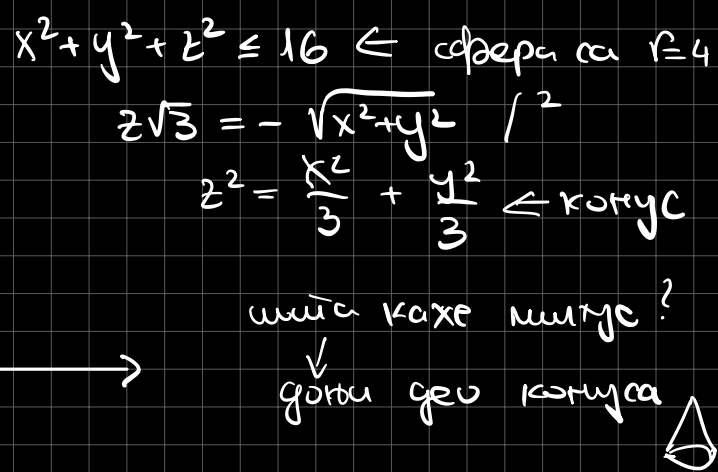 x² + y² + z² ≤ 16 ← сфера са r=4
z√3 = - √(x²+y²) /²
z² = x²/3 + y²/3 ← конус
шта каже минус?
↓
доњи део конуса